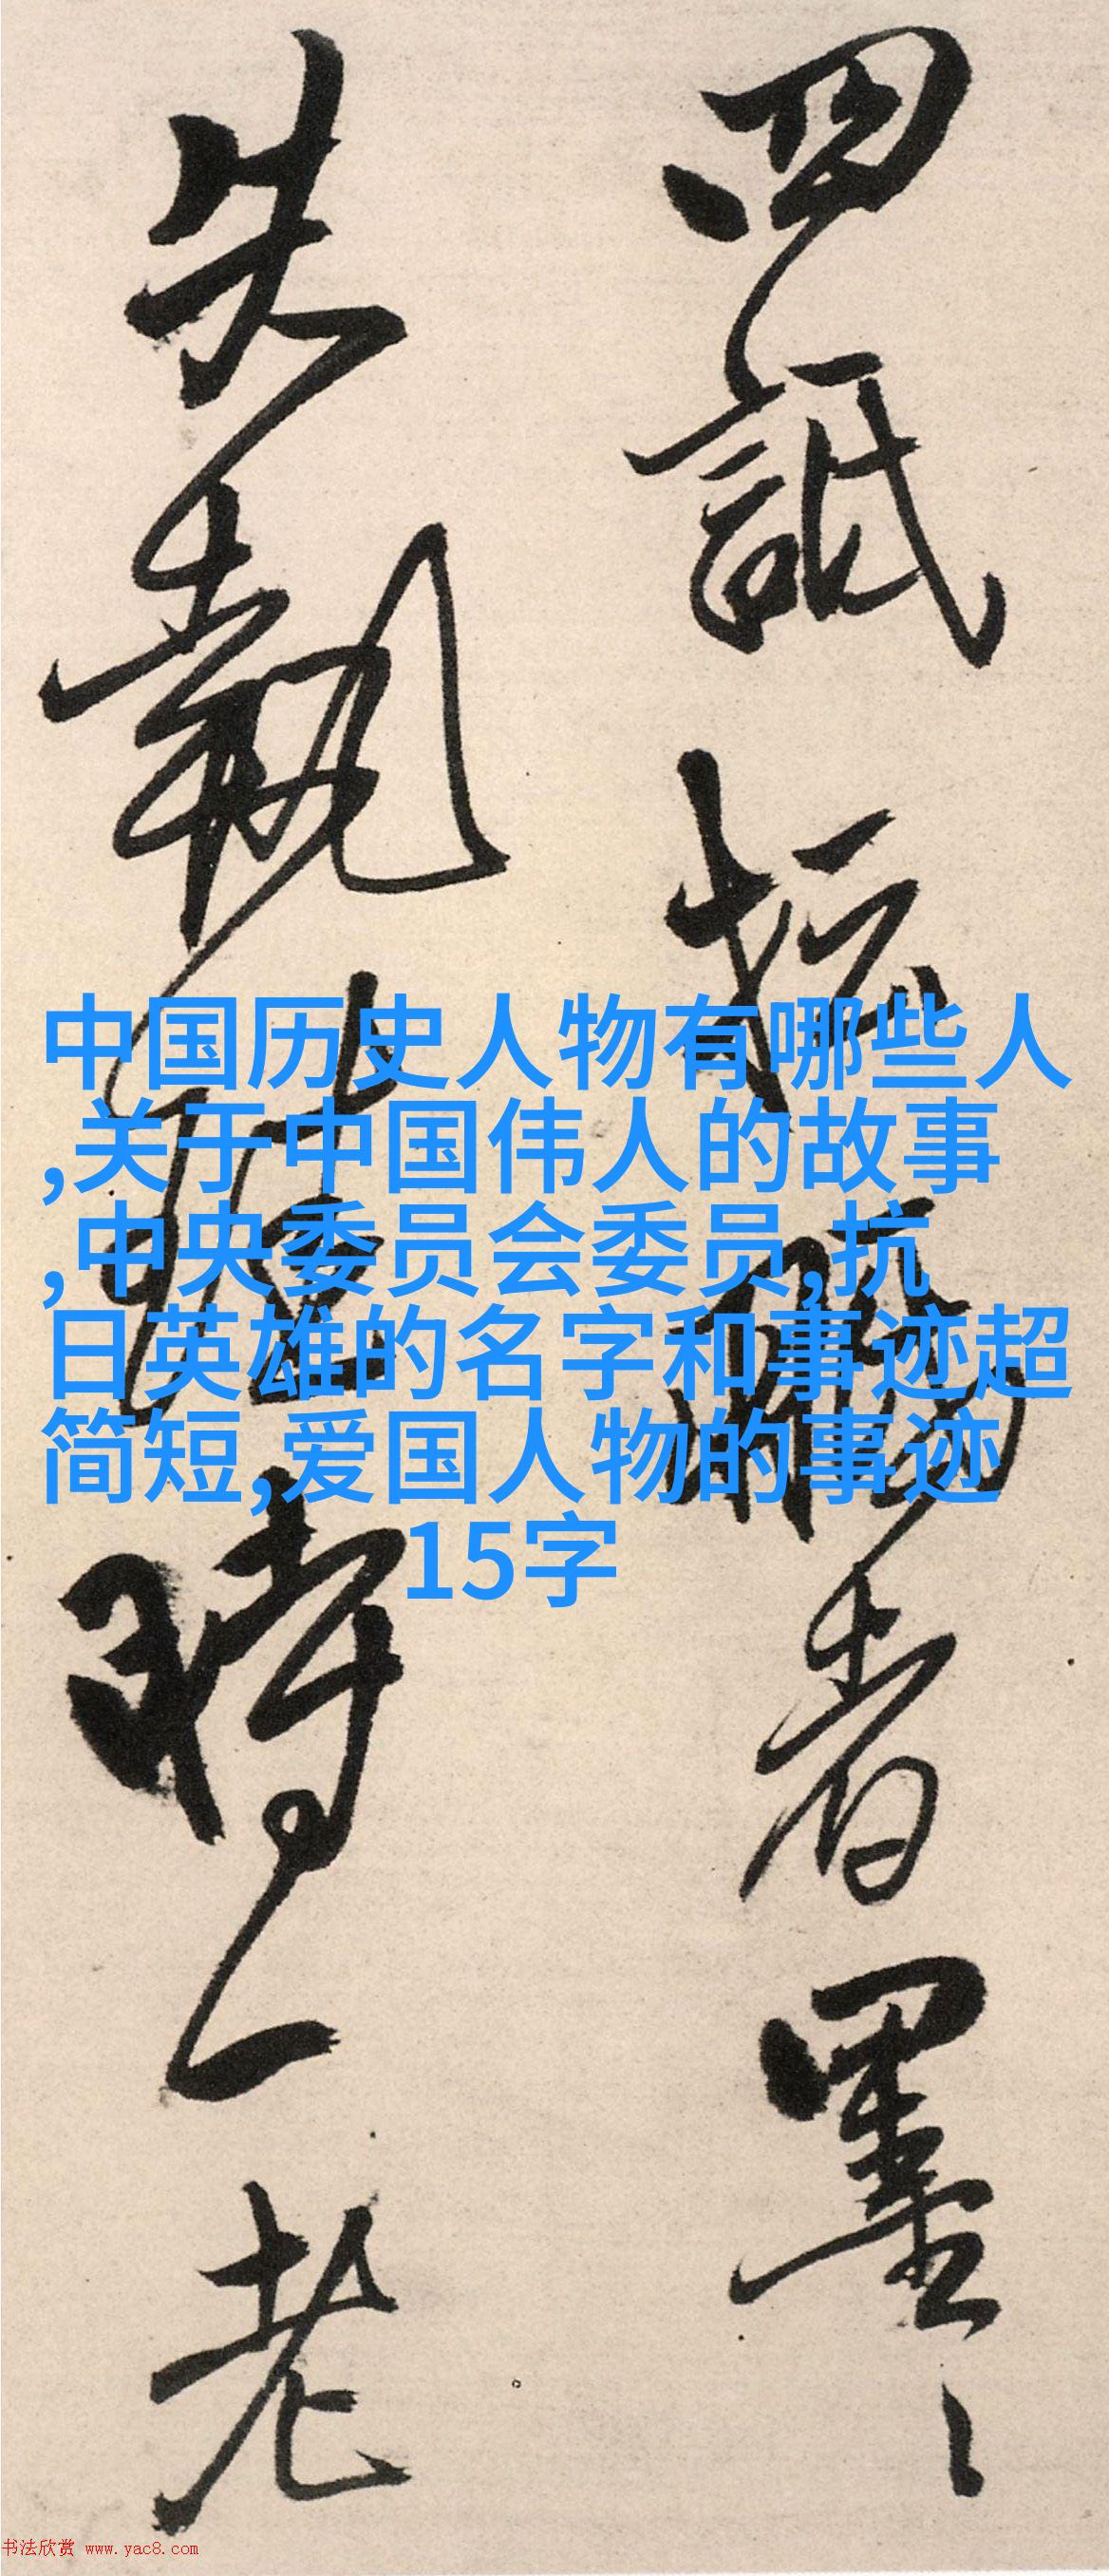 四詆抵
者墨
失執
時一老
中国历史人物有哪些人
,关于中国伟人的故事
,中央委员会委员,抗
日英雄的名字和事迹超
简短,爱国人物的事迹
15字
书法欣赏 www.yac8.com